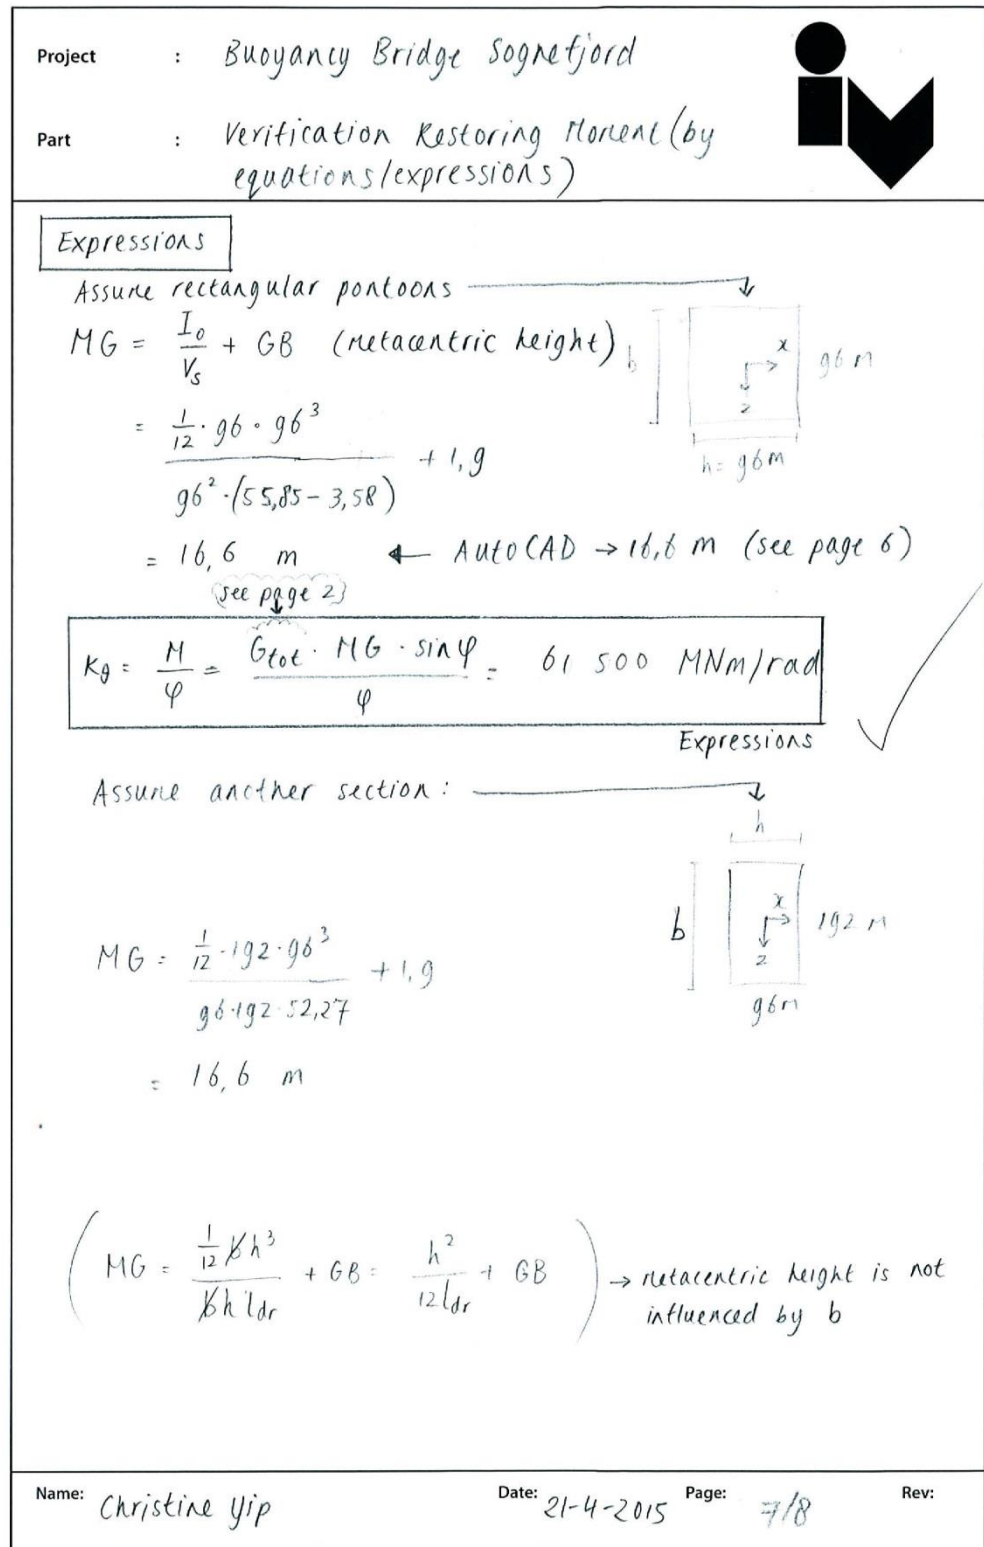 Project : Buoyancy Bridge Sognefjord
Part : Verification Restoring Moment (by
equations/expressions)
iv
Expressions
Assume rectangular pontoons
MG = I₀/Vₛ + GB (metacentric height)
b
x
z
96 m
h = 96m
= (1/12 · 96 · 96³)/(96² · (55,85 - 3,58)) + 1,9
= 16,6 m ← AutoCAD → 16,6 m (see page 6)
(see page 2)
Kg = M/φ = (Gtot · MG · sin φ)/φ = 61 500 MNm/rad
Expressions
Assume another section:
h
b
x
z
192 m
96m
MG = (1/12 · 192 · 96³)/(96 · 192 · 52,27) + 1,9
= 16,6 m
(MG = (1/12 b h³)/(b h ldr) + GB = h²/(12 ldr) + GB) → metacentric height is not
influenced by b
Name: Christine Yip Date: 21-4-2015 Page: 7/8 Rev: